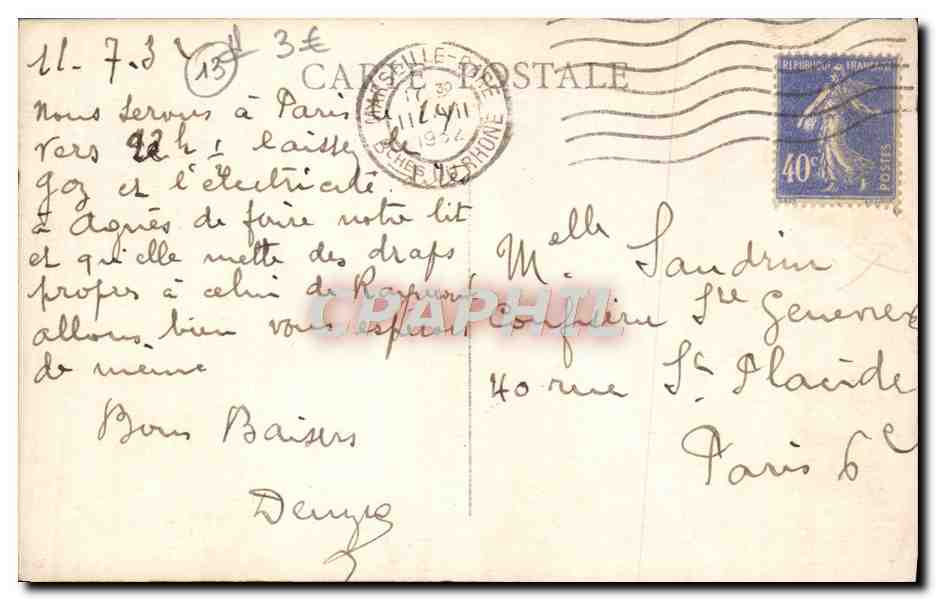 11-7-32
13
3€
CARTE POSTALE
MARSEILLE-GARE
11 VII
1932
BCHES DU RHONE
REPUBLIQUE FRANÇAISE
40c
POSTES
nous serons à Paris le
vers 22h, laissez le
gaz et l'électricité.
à Agnès de faire notre lit
et qu'elle mette des draps
propres à celui de Raymond
allons bien vous espérons
de même
Bons Baisers
Denyse
Melle Sandrin
Confiserie Ste Geneviève
40 rue St Placide
Paris 6e
CPAPHIL